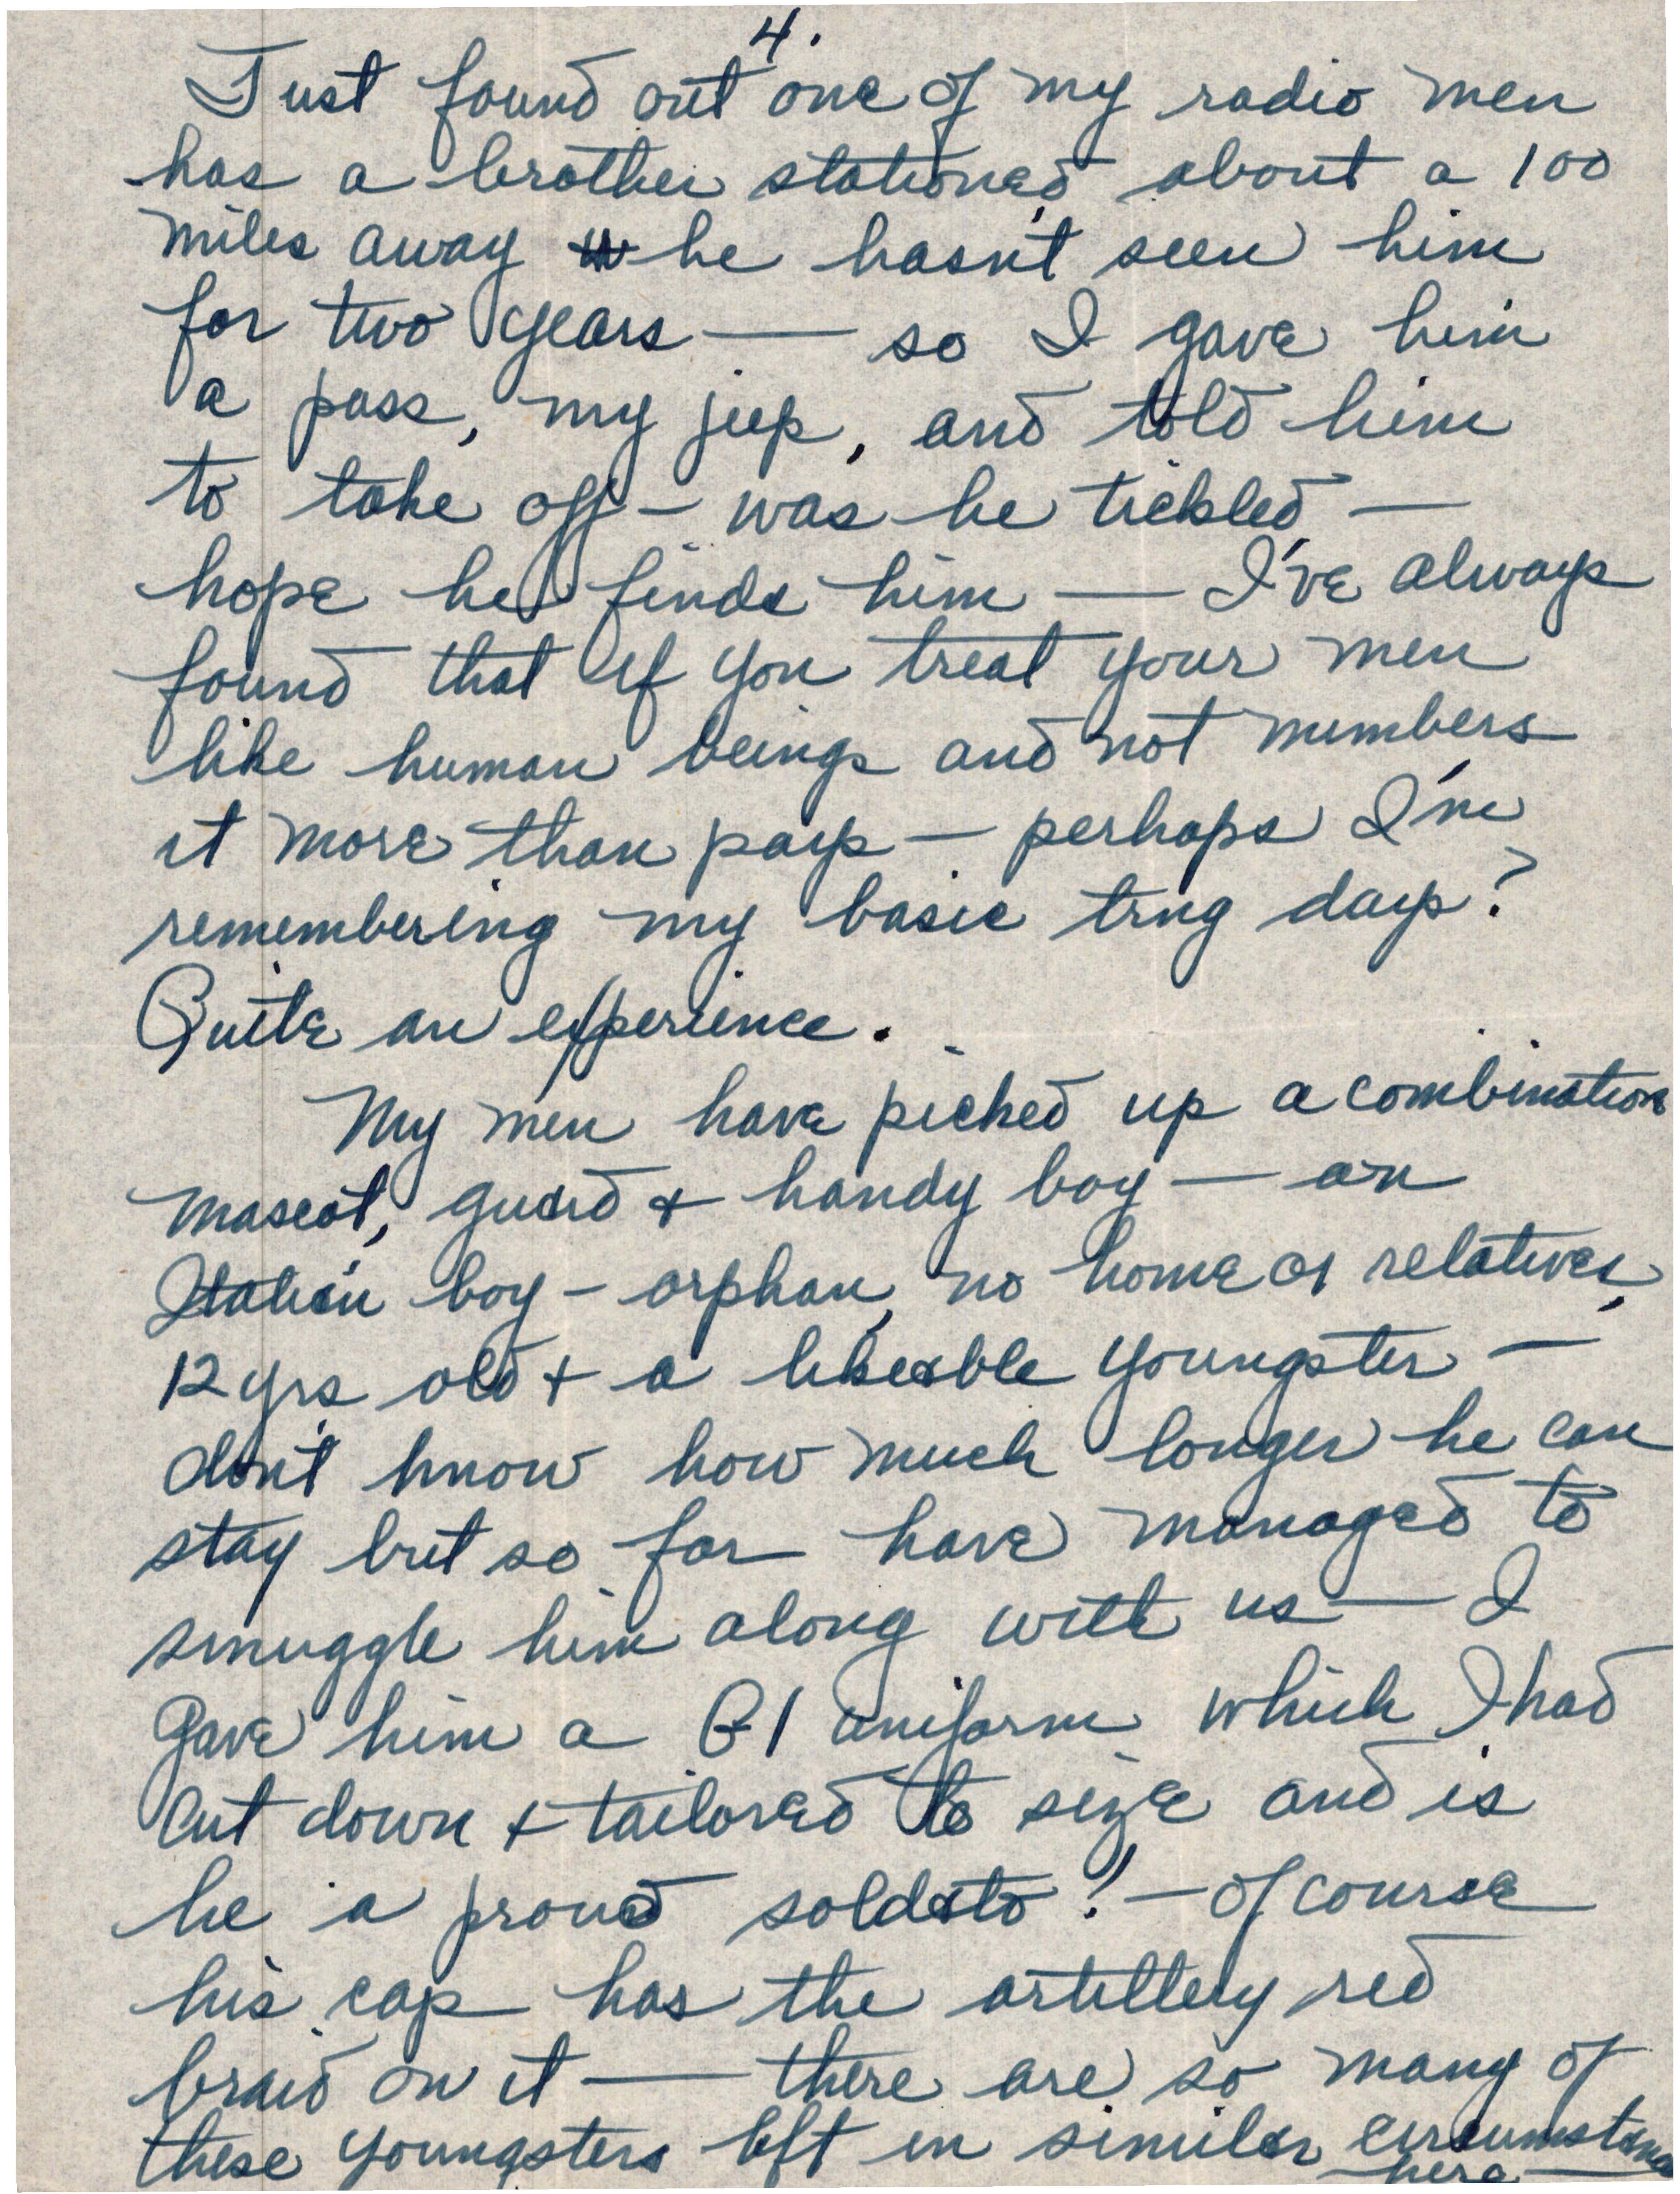 4.
Just found out one of my radio men
has a brother stationed about a 100
miles away he hasn't seen him
for two years — so I gave him
a pass, my jeep, and told him
to take off — was he tickled —
hope he finds him — I've always
found that if you treat your men
like human beings and not numbers
it more than pays — perhaps I'm
remembering my basic trng days?
Quite an experience.
My men have picked up a combination
mascot, guard & handy boy — an
Italian boy — orphan, no home or relatives,
12 yrs old & a likeable youngster —
don't know how much longer he can
stay but so far have managed to
smuggle him along with us — I
gave him a GI uniform which I had
cut down & tailored to size and is
he a proud soldato! — of course
his cap has the artillery red
braid on it — there are so many of
these youngsters left in similar circumstances
here —